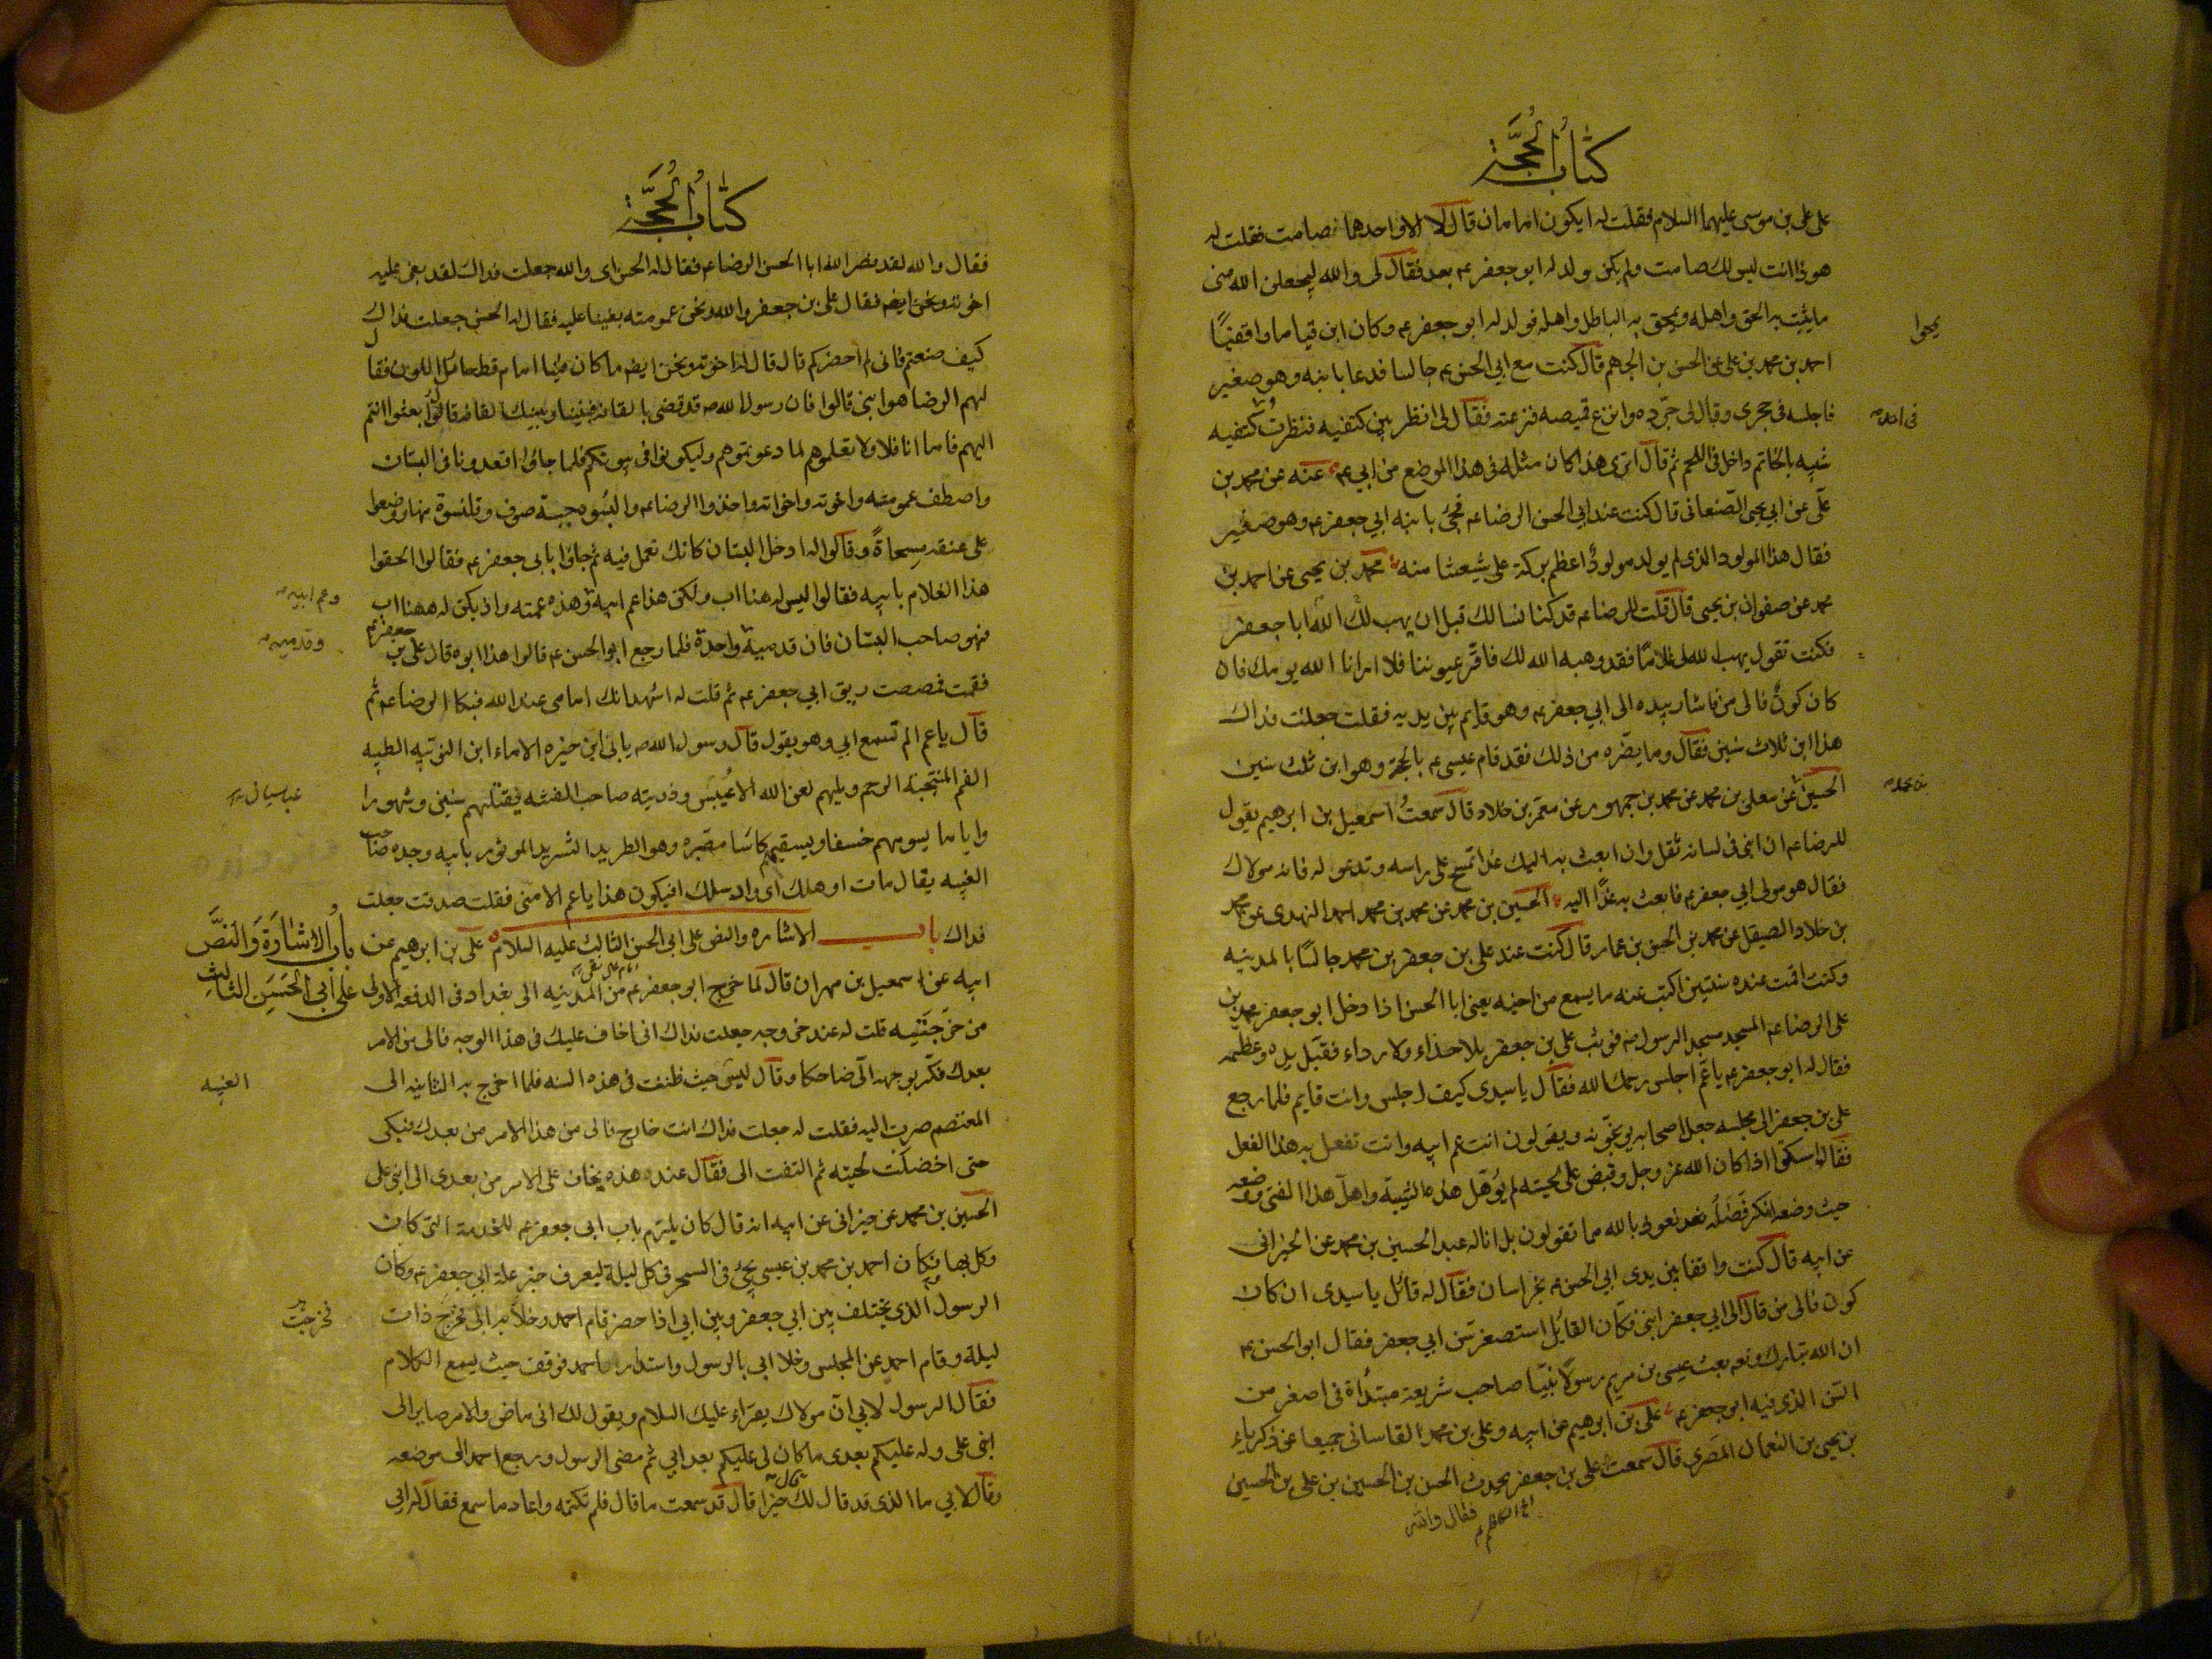 كتاب الحجة
على علي بن موسى عليهما السلام فقلت له ايكون امامان قال لا الا واحدهما صامت فقلت له
هو ذا انت ليس لك صامت ولم يكن ولد له ابو جعفر ع بعد فقال لى والله ليجعلن الله منى
ما يثبت به الحق واهله ويمحق به الباطل واهله فولد له ابو جعفر ع وكان ابن قياما واقفيًا
يمحوا
احمد بن محمد بن على عن الحسن بن الجهم قال كنت مع ابي الحسن ع جالسا فدعا بابنه وهو صغير
فاجلسه في حجرى وقال لى جرّده وانزع قميصه فنزعته فقال لى انظر بين كتفيه فنظرت كتفيه
فى احد
شبيه بالخاتم داخل فى اللحم ثم قال اترى هذا كان مثله في هذا الموضع من ابي ع عنه عن محمد بن
علّى عن ابي يحيى الصّنعانى قال كنت عند ابي الحسن الرضا ع فجئ بابنه ابي جعفر ع وهو صغير
فقال هذا المولود الذى لم يولد مولودٌ اعظم بركة على شيعتنا منه محمد بن يحيى عن احمد بن
محمد عن صفوان بن يحيى قال قلت للرضا ع قد كنا نسالك قبل ان يهب لك الله ابا جعفر
فكنت تقول يهب الله لى غلامًا فقد وهبه الله لك فاقرّ عيوننا فلا ارانا الله يومك فان
كان كونٌ فالى من فاشار بيده الى ابي جعفر ع وهو قايم بين يديه فقلت جعلت فداك
هذا ابن ثلاث سنين فقال وما يضّره من ذلك فقد قام عيسى ع بالحجة وهو ابن ثلث سنين
الحسين عن معلى بن محمد عن محمد بن جمهور عن معمّر بن خلاد قال سمعتُ اسمعيل بن ابرهيم يقول
بن محمد
للرضا ع ان ابنى فى لسانه ثقل وانا ابعث به اليك غدًا تمسح على راسه وتدعو له فانه مولاك
فقال هو مولى ابي جعفر ع فابعث به غدًا اليه الحسين بن محمد عن محمد بن احمد النهدى عن محمد
بن خلاد الصيقل عن محمد بن الحسن بن عمار قال كنت عند على بن جعفر بن محمد جالسًا بالمدينه
وكنت اقمت عنده سنتين اكتب عنه ما يسمع من اخيه يعنى ابا الحسن اذا دخل ابو جعفر محمد بن
على الرضا ع المسجد مسجد الرسول ص فوثب على بن جعفر بلا حذاء ولا رداء فقبّل يده وعظمه
فقال له ابو جعفر ع يا عّم اجلس رحمك الله فقال يا سيدى كيف اجلس وانت قايم فلما رجع
على بن جعفر الى مجلسه جعل اصحابه يوبّخونه ويقولون انت عم ابيه وانت تفعل به هذا الفعل
فقال اسكتوا اذا كان الله عز وجل وقبض على لحيته لم يؤهّل هذه الشيبة واهلّ هذا الفتى ووضعه
حيث وضعه انكر فضله نعوذ بالله مما تقولون بل انا له عبد الحسين بن محمد عن الخيرانى
عن ابيه قال كنت واقفا بين يدى ابي الحسن ع بخراسان فقال له قائل يا سيدى ان كان
كون فالى من قال الى ابي جعفر ابنى فكان القائل استصغر سّن ابي جعفر فقال ابو الحسن ع
ان الله تبارك وتعه بعث عيسى بن مريم رسولًا نبيّا صاحب شريعة مبتدأة فى اصغر من
السّن الذى فيه ابو جعفر ع على بن ابرهيم عن ابيه وعلى بن محمد القاسانى جميعا عن زكرياء
بن يحيى بن النعمان المصرى قال سمعت على بن جعفر يحدث الحسن بن الحسين بن على بن الحسين
فقال والله
كتاب الحجة
فقال والله لقد نصر الله ابا الحسن الرضا ع فقال له الحسن اى والله جعلت فداك لقد بغى عليه
اخوته ونحن ايضا فقال على بن جعفر اى والله ونحن عمومته بغينا عليه فقال له الحسن جعلت فداك
كيف صنعتم فانى لم احضركم قال قال له اخوته ونحن ايضا ما كان فينا امام قط حائل اللون فقال
لهم الرضا هو ابنى قالوا فان رسول الله ص قد قضى بالقافه فبيننا وبينك القافه قال ابعثوا انتم
اليهم فاما انا فلا ولا تعلموهم لما دعوتموهم وليكونوا فى بيوتكم فلما جاؤا اقعدونا فى البستان
واصطف عمومته واخوته واخواته واخذوا الرضا ع والبسُوه جبة صوف وقلنسوة منها ووضعوا
على عنقه مسحاةً وقالوا له ادخل البستان كانك تعمل فيه ثم جاؤا بابي جعفر ع فقالوا الحقوا
هذا الغلام بابيه فقالوا ليس له هنا اب ولكن هذا عم ابيه وهذه عمته وان يكن له ههنا اب
وعم ابيه
فهو صاحب البستان فان قدميه واحدة فلما رجع ابو الحسن ع قالوا هذا ابوه قال على بن جعفر ع
وقدميه
فقمت فمصصت ريق ابي جعفر ع ثم قلت له اشهد انك امامى عند الله فبكا الرضا ع ثم
قال يا عم الم تسمع ابي وهو يقول قال رسول الله ص بابى ابن خيره الاماء ابن النوبيّه الطيبه
الفم المنتجبه الرحم ويلهم لعن الله الاعيبس وذريته صاحب الفتنه فيقتلهم سنين وشهورا
واياما يسومهم خسفا ويسقيهم كاسًا مصبره وهو الطريد الشريد الموتور بابيه وجده صاحب
الغيبه يقال مات او هلك اى واد سلك افيكون هذا يا عم الا منى فقلت صدقت جعلت
فداك باب الاشاره والنص على ابي الحسن الثالث عليه السلام على بن ابرهيم عن
باب الاشارة والنصّ
على أبي الحسن الثالث
ابيه عن اسمعيل بن مهران قال لما خرج ابو جعفر ع من المدينه الى بغداد فى الدفعة الاولى
من خرجتيه قلت له عند خروجه جعلت فداك انى اخاف عليك فى هذا الوجه فالى من الامر
بعدك فكّر بوجهه الّى ضاحكا وقال ليس حيث ظننت فى هذه السنه فلما اخرج به الثانيه الى
الغيبه
المعتصم صرت اليه فقلت له جعلت فداك انت خارج فالى من هذا الامر من بعدك فبكى
حتى اخضلّت لحيته ثم التفت الى فقال عنده هذه يخاف على الامر من بعدى الى ابنى على
الحسين بن محمد عن خيرانى عن ابيه انه قال كان يلتزم باب ابي جعفر ع للخدمة التى كان
وكل بها فكان احمد بن محمد بن عيسى يجئ فى السحر فى كل ليلة ليعرف خبر علة ابي جعفر ع وكان
الرسول الذى يختلف بين ابي جعفر وبين ابي اذا حضر قام احمد وخلا به ابى فخرج ذات
فخرجت
ليلة وقام احمد عن المجلس وخلا ابى بالرسول واستدار احمد فوقف حيث يسمع الكلام
فقال الرسول لابي انّ مولاك يقراء عليك السلام ويقول لك انى ماض والامر صاير الى
ابنى على وله عليكم بعدى ما كان لى عليكم بعد ابي ثم مضى الرسول ورجع احمد الى موضعه
وقال لابي ما الذى قد قال لك قال خيرا قال قد سمعت ما قال فلم تكتمه واعاد ما سمع فقال له ابى